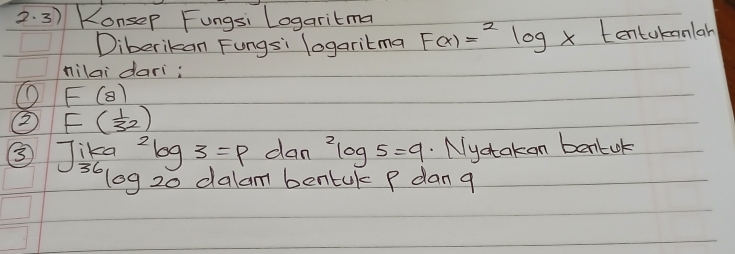 2.3) Konsep Fungsi Logaritma
Diberikan Fungsi logaritma F(x) = ² log x tentukanlah
nilai dari :
① F (8)
② F (1/32)
③ Jika ²log 3 = p dan ²log 5 = q. Nyatakan bentuk
³⁶log 20 dalam bentuk p dan q